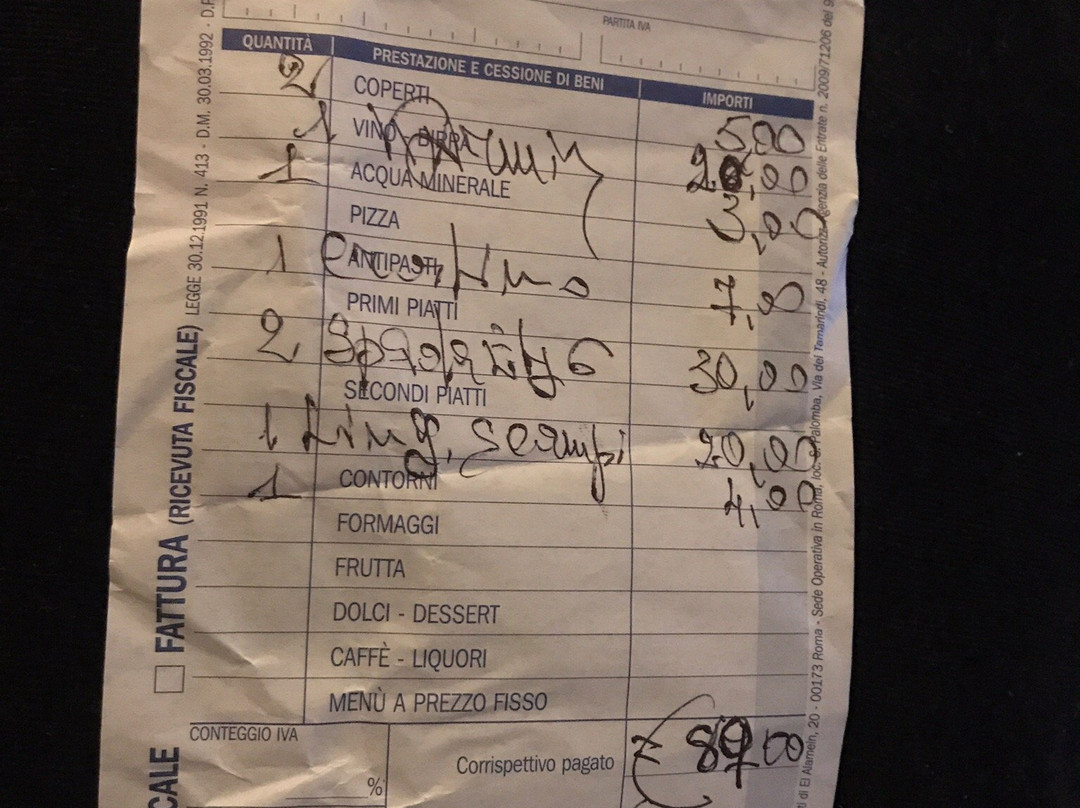 PARTITA IVA
QUANTITÀ PRESTAZIONE E CESSIONE DI BENI IMPORTI
2 COPERTI 5,00
1 VINO - BIRRA 20,00
1 ACQUA MINERALE 3,00
PIZZA
1 ANTIPASTI 7,00
PRIMI PIATTI
2 30,00
SECONDI PIATTI
1 Ling. Scampi 20,00
1 CONTORNI 4,00
FORMAGGI
FRUTTA
DOLCI - DESSERT
CAFFÈ - LIQUORI
MENÙ A PREZZO FISSO
CONTEGGIO IVA
%
Corrispettivo pagato € 89,00
FATTURA (RICEVUTA FISCALE) LEGGE 30.12.1991 N. 413 - D.M. 30.03.1992 -
CALE
di El Alamein, 20 - 00173 Roma - Sede Operativa in Roma, loc. Palomba, Via dei Tamarindi, 48 - Autorizz. Agenzia delle Entrate n. 2009/71206 del